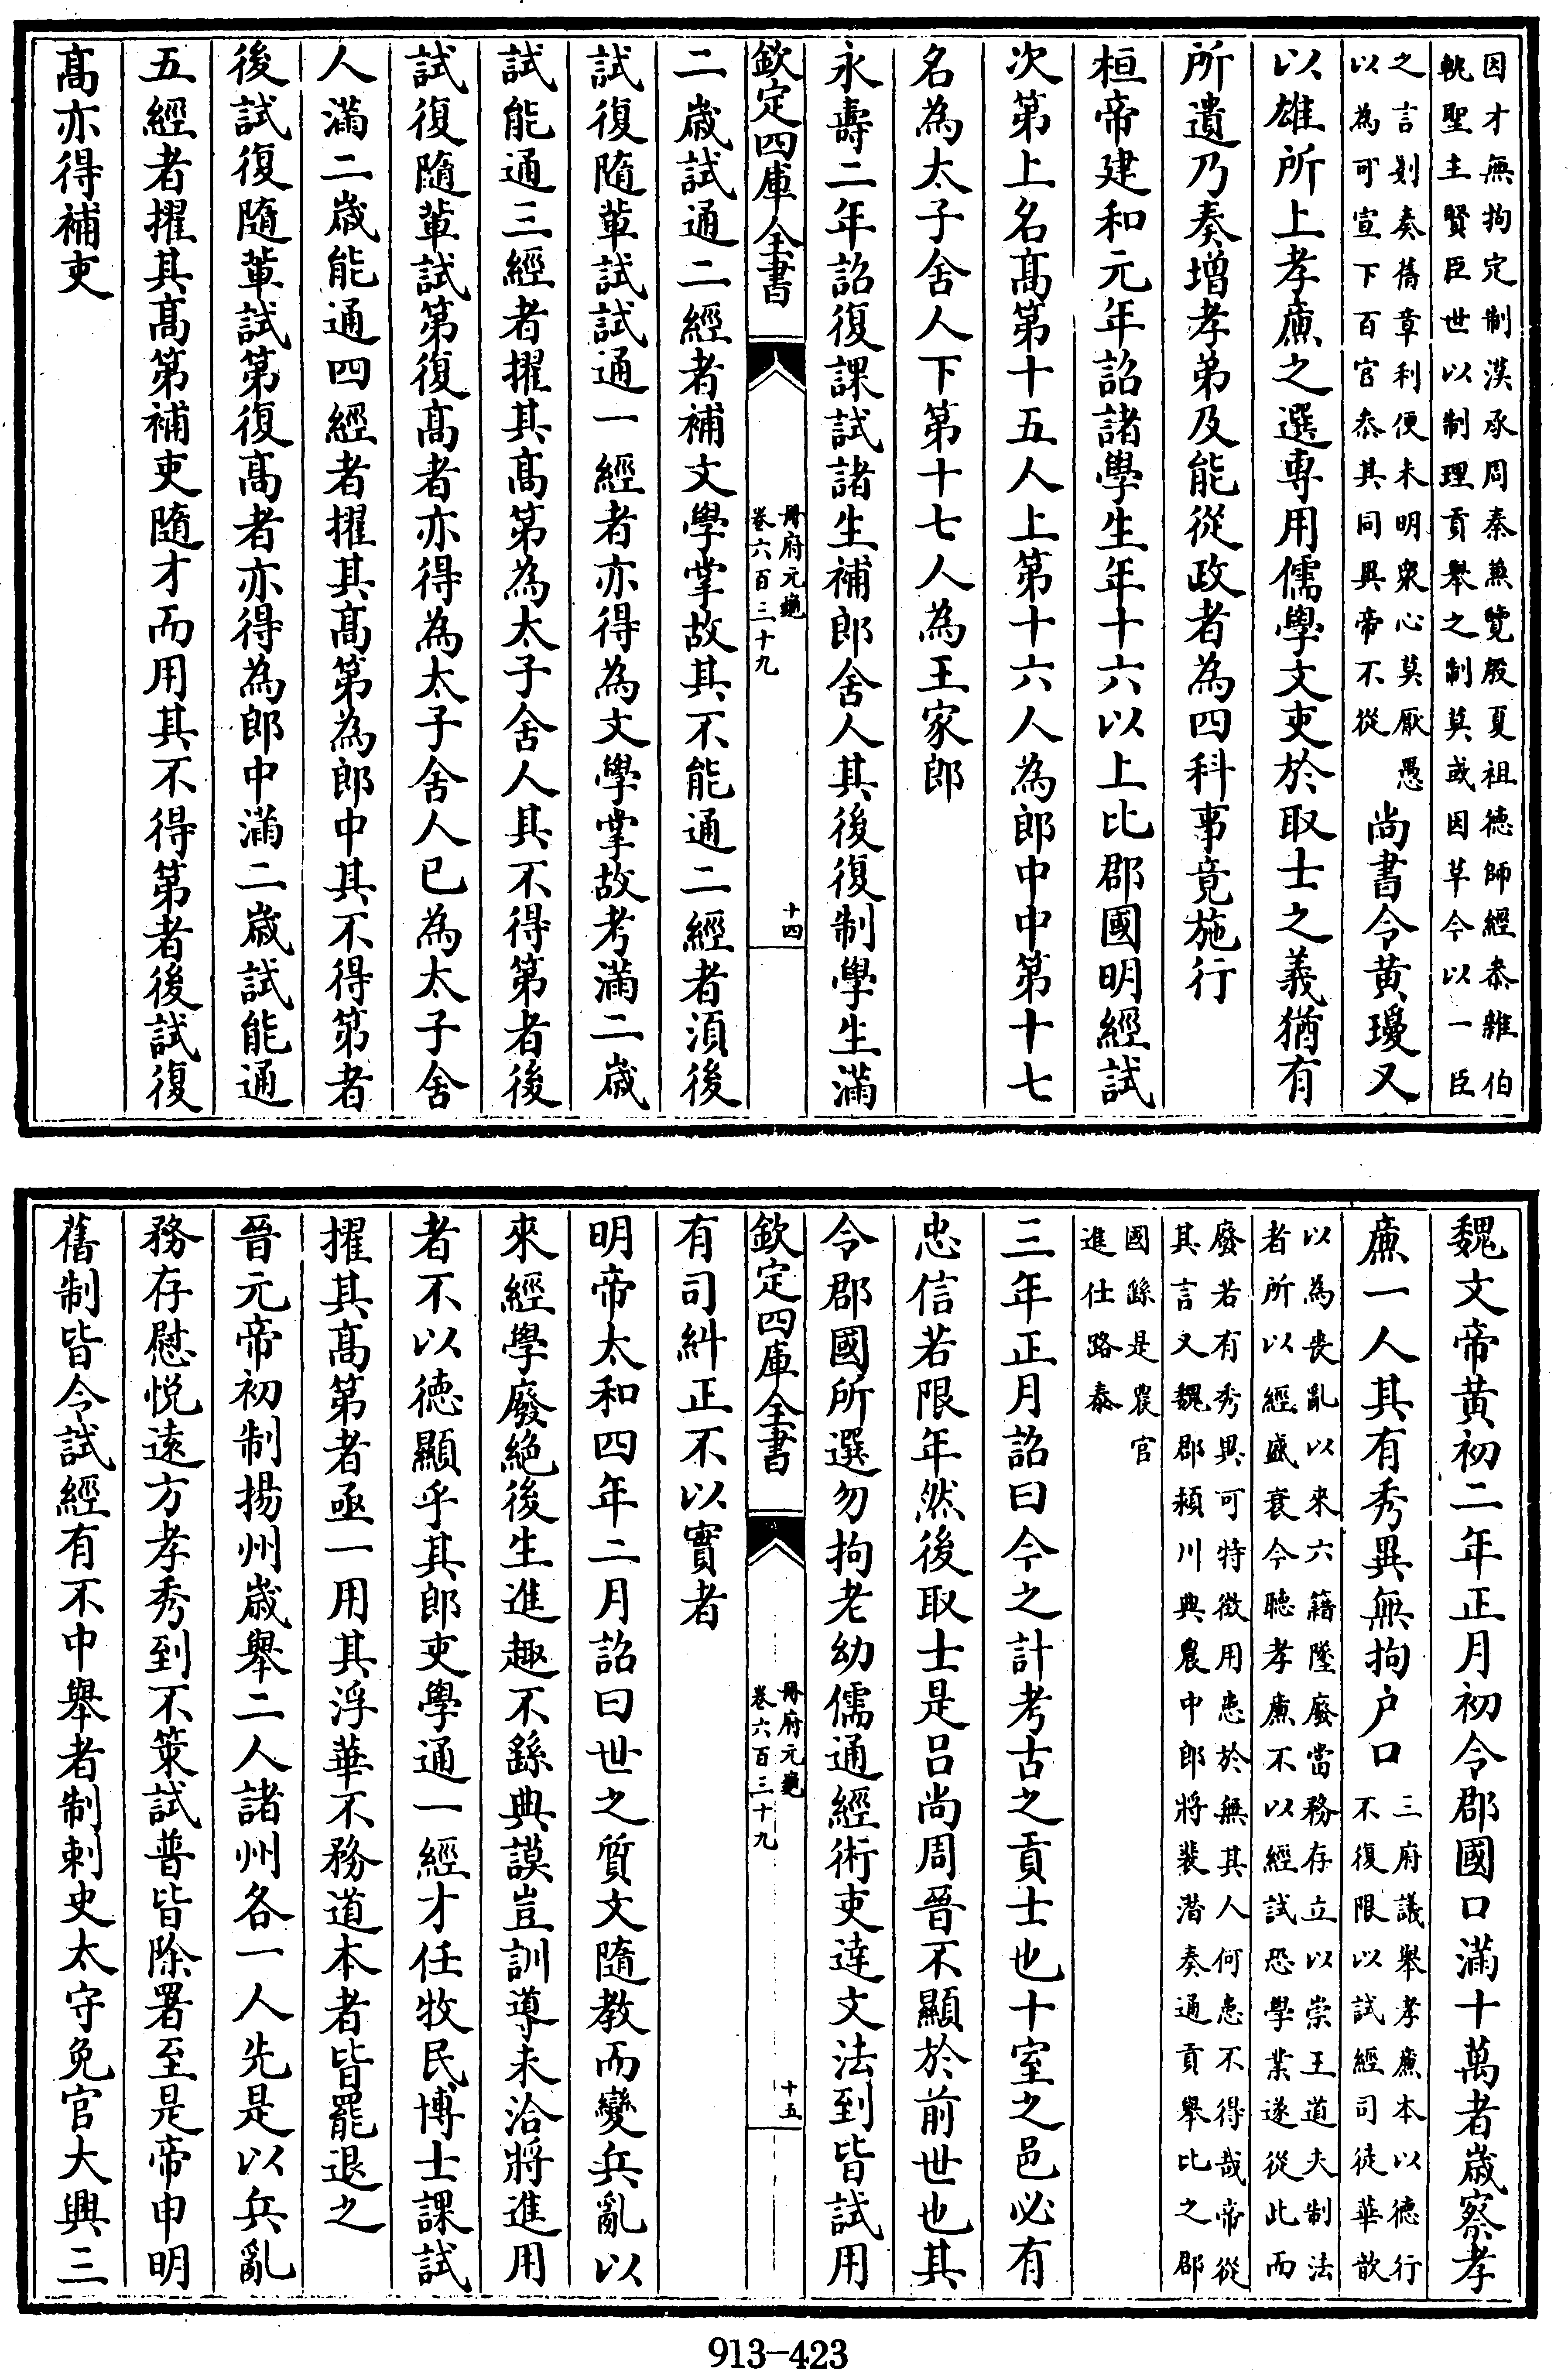 因才無拘定制漢承周秦兼覽殷夏祖德師經叅雜伯
軌聖主賢臣世以制理貢舉之制莫或因革今以一臣
之言剗奏舊章利便未明衆心莫厭愚
以為可宣下百官叅其同異帝不從
尚書令黄瓊又
以雄所上孝廉之選専用儒學文吏於取士之義猶有
所遺乃奏増孝弟及能從政者為四科事竟施行
桓帝建和元年詔諸學生年十六以上比郡國明經試
次第上名髙第十五人上第十六人為郎中中第十七
名為太子舍人下第十七人為王家郎
永壽二年詔復課試諸生補郎舍人其後復制學生滿
欽定四庫全書
冊府元龜
卷六百三十九
十四
二歳試通二經者補文學掌故其不能通二經者湏後
試復隨軰試試通一經者亦得為文學掌故考滿二歳
試能通三經者擢其髙第為太子舍人其不得第者後
試復隨軰試第復髙者亦得為太子舍人已為太子舍
人滿二歳能通四經者擢其髙第為郎中其不得第者
後試復隨軰試第復髙者亦得為郎中滿二歳試能通
五經者擢其髙第補吏隨才而用其不得第者後試復
髙亦得補吏
魏文帝黄初二年正月初令郡國口滿十萬者歳察孝
廉一人其有秀異無拘户口
三府議舉孝廉本以德行
不復限以試經司徒華歆
以為喪亂以来六籍墜廢當務存立以崇王道夫制法
者所以經盛衰今聴孝廉不以經試恐學業遂從此而
廢若有秀異可特徴用患於無其人何患不得哉帝從
其言又魏郡潁川典農中郎將裴潜奏通貢舉比之郡
國繇是農官
進仕路泰
三年正月詔曰今之計考古之貢士也十室之邑必有
忠信若限年然後取士是吕尚周晉不顯於前世也其
令郡國所選勿拘老幼儒通經術吏達文法到皆試用
欽定四庫全書
冊府元龜
卷六百三十九
十五
有司糾正不以實者
明帝太和四年二月詔曰世之質文隨教而變兵亂以
來經學廢絶後生進趣不繇典謨豈訓導未洽將進用
者不以徳顯乎其郎吏學通一經才任牧民博士課試
擢其髙第者亟一用其浮華不務道本者皆罷退之
晉元帝初制揚州歳舉二人諸州各一人先是以兵亂
務存慰悦逺方孝秀到不策試普皆除署至是帝申明
舊制皆令試經有不中舉者制刺史太守免官大興三
913-423